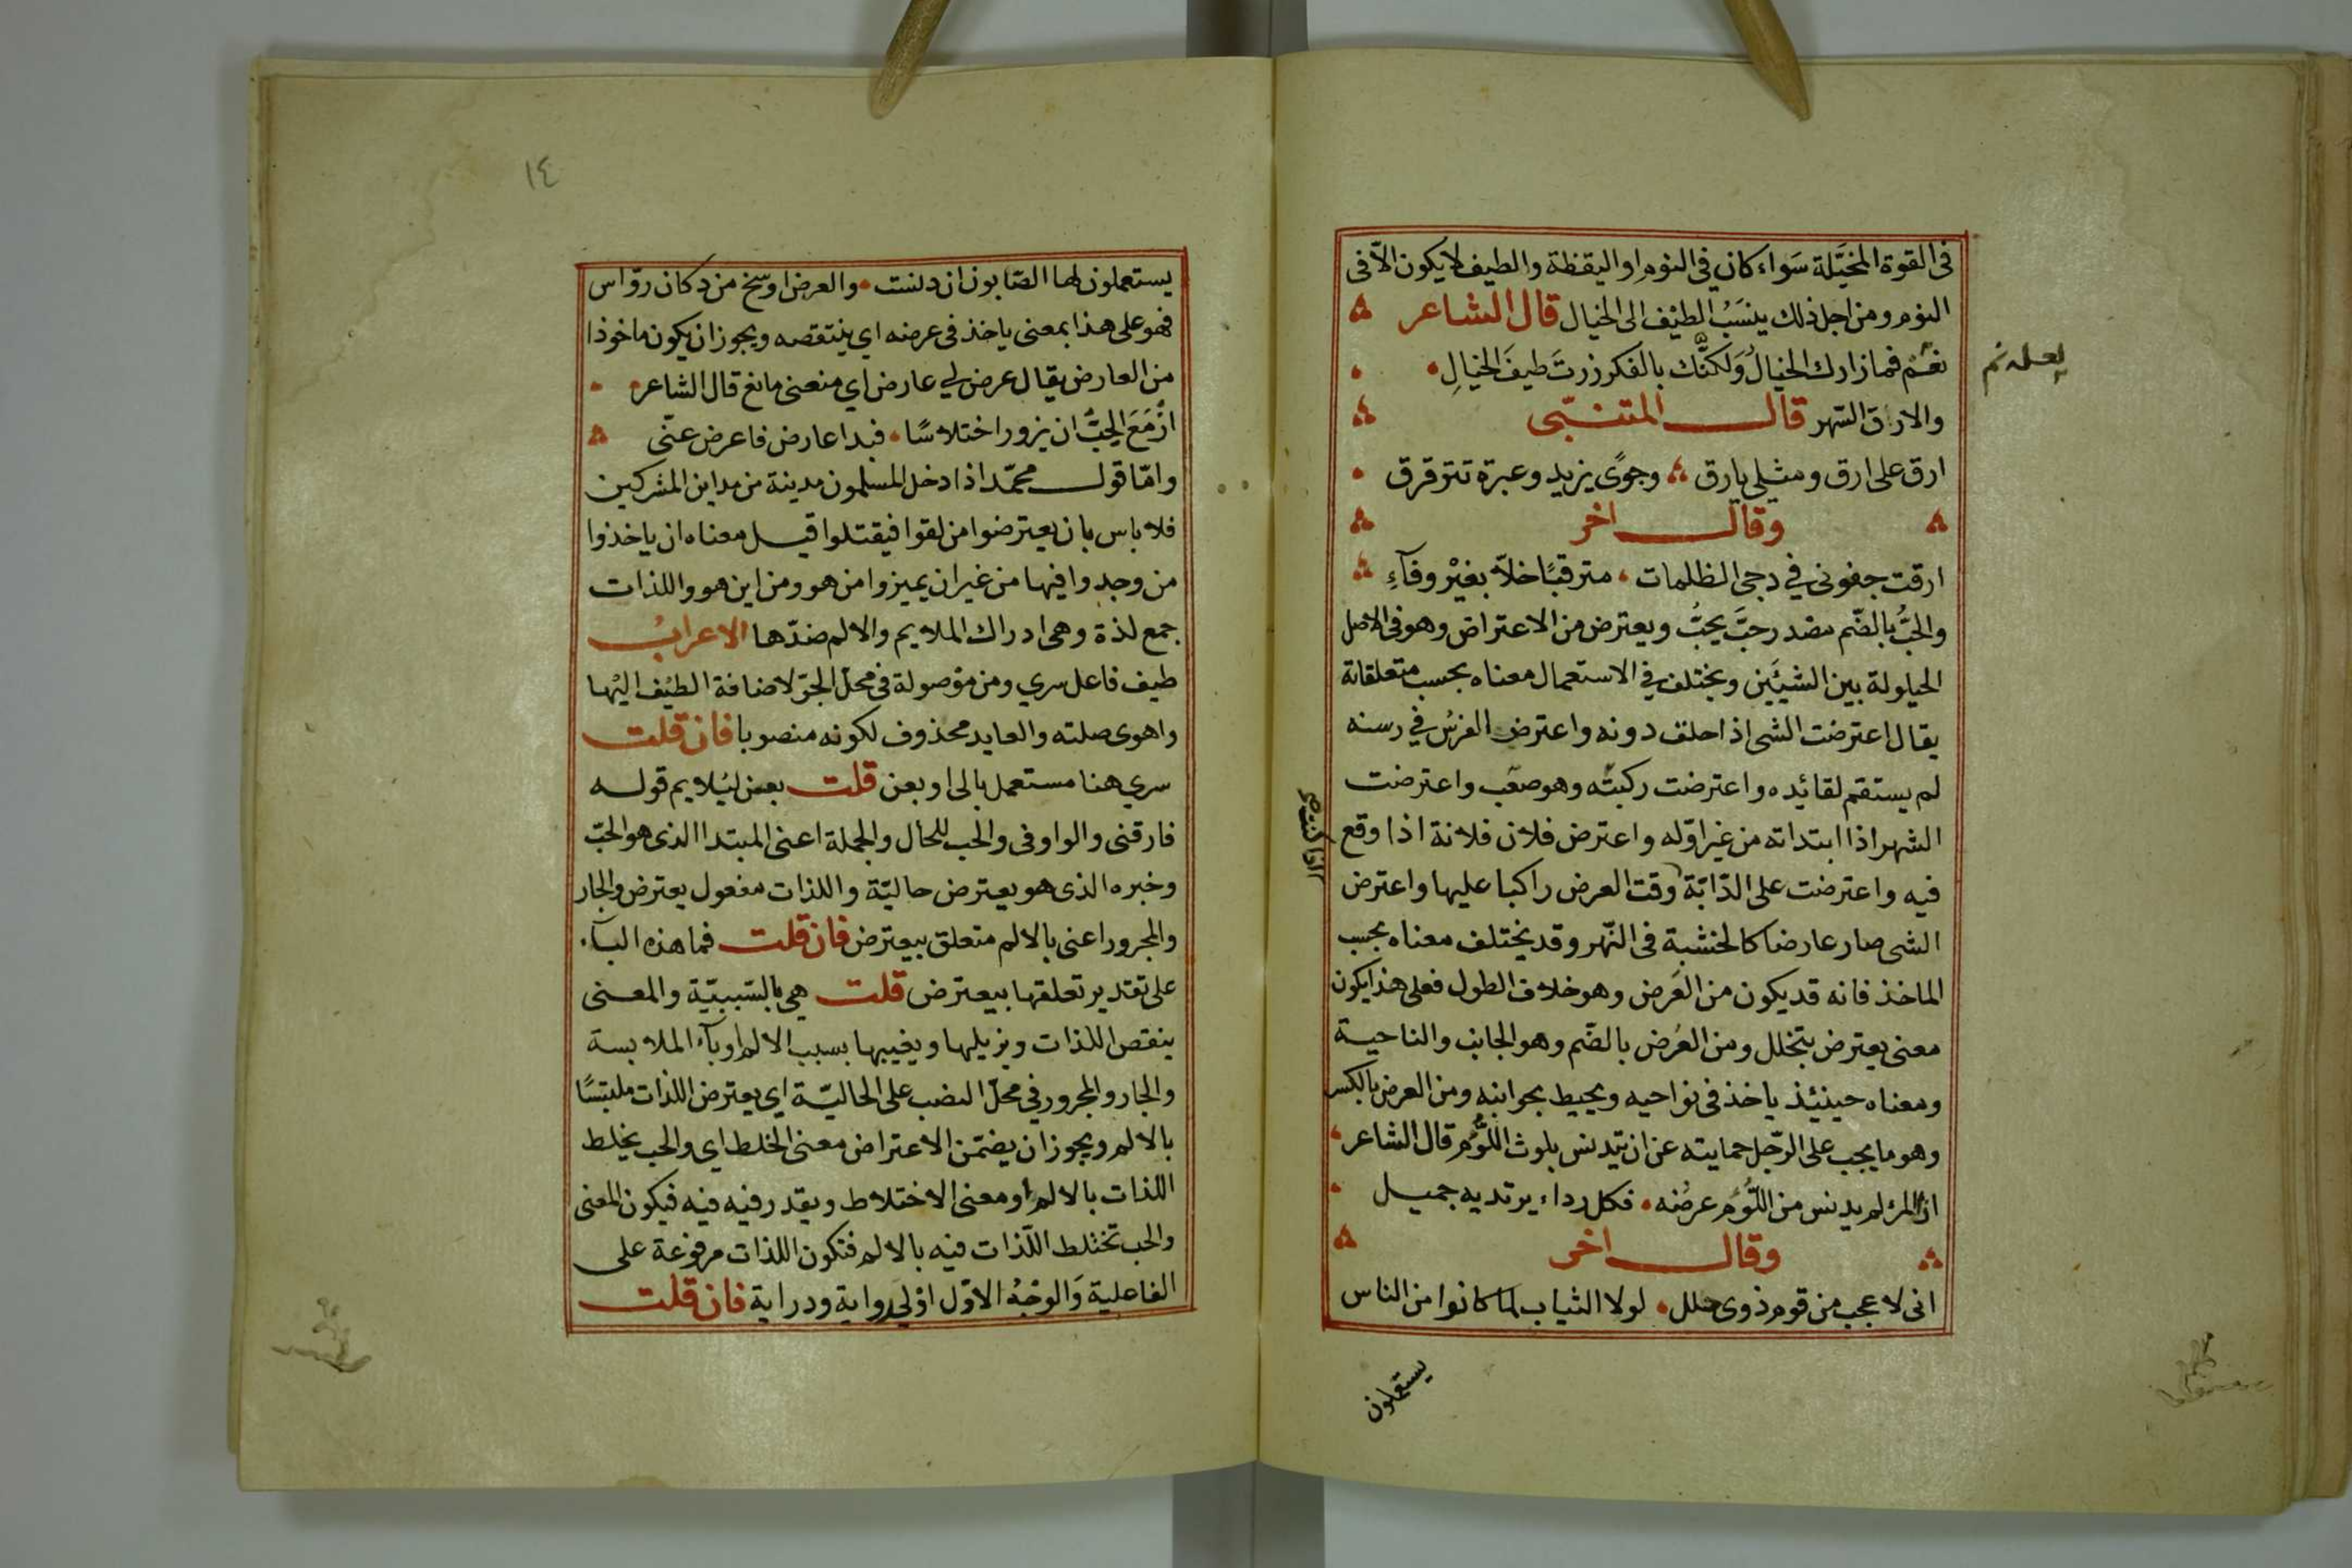 فى القوة المخيَّلة سَواء كان في النومِ او اليقظة والطيف لا يكون الاّ فى
النوم ومن اجل ذلك ينسَبُ الطيْف الى الخيال قال الشاعر
نغم فما زارك الخيالُ وَلكنَّك بالفكر زرتَ طيفَ الخيالِ
لعله نم
والارق السّهر قال المتنبّى
ارق على ارق ومثلي يارق وجوًى يزيد وعبرة تترقرق
وقال اخر
ارقت جفونى في دجى الظلمات مترقبًا خلاّ بغيْر وفآءِ
والحبُّ بالضّم مصدر حبَّ يحبُّ ويعترض من الاعتراض وهو فى الاصل
الحيلولة بين الشيَئين ويختلف في الاستعمال معناه بحسب متعلقاتة
يقال اعترضت الشى اذا حلت دونه واعترض الفرسُ في رسنه
لم يستقم لقائِده واعترضت ركبته وهو صعب واعترضت
الشهر اذا ابتداته من غير اوّله واعترض فلان فلانة اذا وقع
فيه واعترضت على الدّابّة وقت العرض راكبا عليها واعترض
اذا كنت
الشى صار عارضا كالخشبة فى النّهر وقد يختلف معناه بحسب
الماخذ فانه قد يكون من العَرض وهو خلاف الطول فعلى هذا يكون
معنى يعترض يتخلل ومن العُرض بالضّم وهو الجانب والناحية
ومعناه حينئذ ياخذ فى نواحيه ويحيط بجوانبه ومن العرض بالكسر
وهو ما يجب على الرّجل حمايته عن ان يتدنس بلوث اللّوُم قال الشاعر
اذا المرُ لم يدنس من اللّوُم عرضُه فكل رداء يرتديه جميل
وقال اخر
انى لاعجب من قوم ذوى حلل لولا الثياب لما كانوا من الناس
يستعملون
١٤
يستعملون لها الصّابون ان دنست والعرض اوسخ من دكان روّاس
فهو على هذا بمعنى ياخذ فى عرضه اي ينتقصه ويجوز ان يكون ماخوذا
من العارض يقال عرض لي عارض اي منعنى مانع قال الشاعر
ازْمَعَ الحِبُّ ان يزور اختلاسًا فبدا عارض فاعرض عنّى
وامّا قول محمّد اذا دخل المسلمون مدينة من مداين المشركين
فلا باس بان يعترضوا من لقوا فيقتلوا قيل معناه ان ياخذوا
من وجدوا فيها من غير ان يميزوا من هو ومن اين هو واللذات
جمع لذة وهى ادراك الملايم والالم ضدّها الاعرابُ
طيف فاعل سري ومن موْصولة فى محلّ الجرّ لاضافة الطيْف اليْها
واهوى صلته والعايد محذوف لكونه منصوبا فان قلت
سري هنا مستعمل بالى او بعن قلت بعن ليُلايم قوله
فارقنى والواو فى والحب للحال والجملة اعنى المبتدا الذى هو الحبّ
وخبره الذى هو يعترض حاليّة واللذات مفعول يعترض والجار
والمجرور اعنى بالالم متعلق بيعترض فان قلت فما هذه البآء
على تقدير تعلقها بيعترض قلت هى بالسّببيّة والمعنى
ينقص اللذات ويزيلها ويغيبها بسبب الالم او بآء الملابسة
والجار والمجرور في محلّ النصب على الحاليّة اي يعترض اللذات ملبتسًا
بالالم ويجوز ان يضمّن الاعتراض معنى الخلط اي والحب يخلط
اللذات بالالم او معنى الاختلاط ويقدر فيه فيه فيكون المعنى
والحب تختلط اللّذات فيه بالالم فتكون اللذات مرفوعة على
الفاعلية وَالوجْهُ الاوّل اوْلى رواية ودراية فان قلت